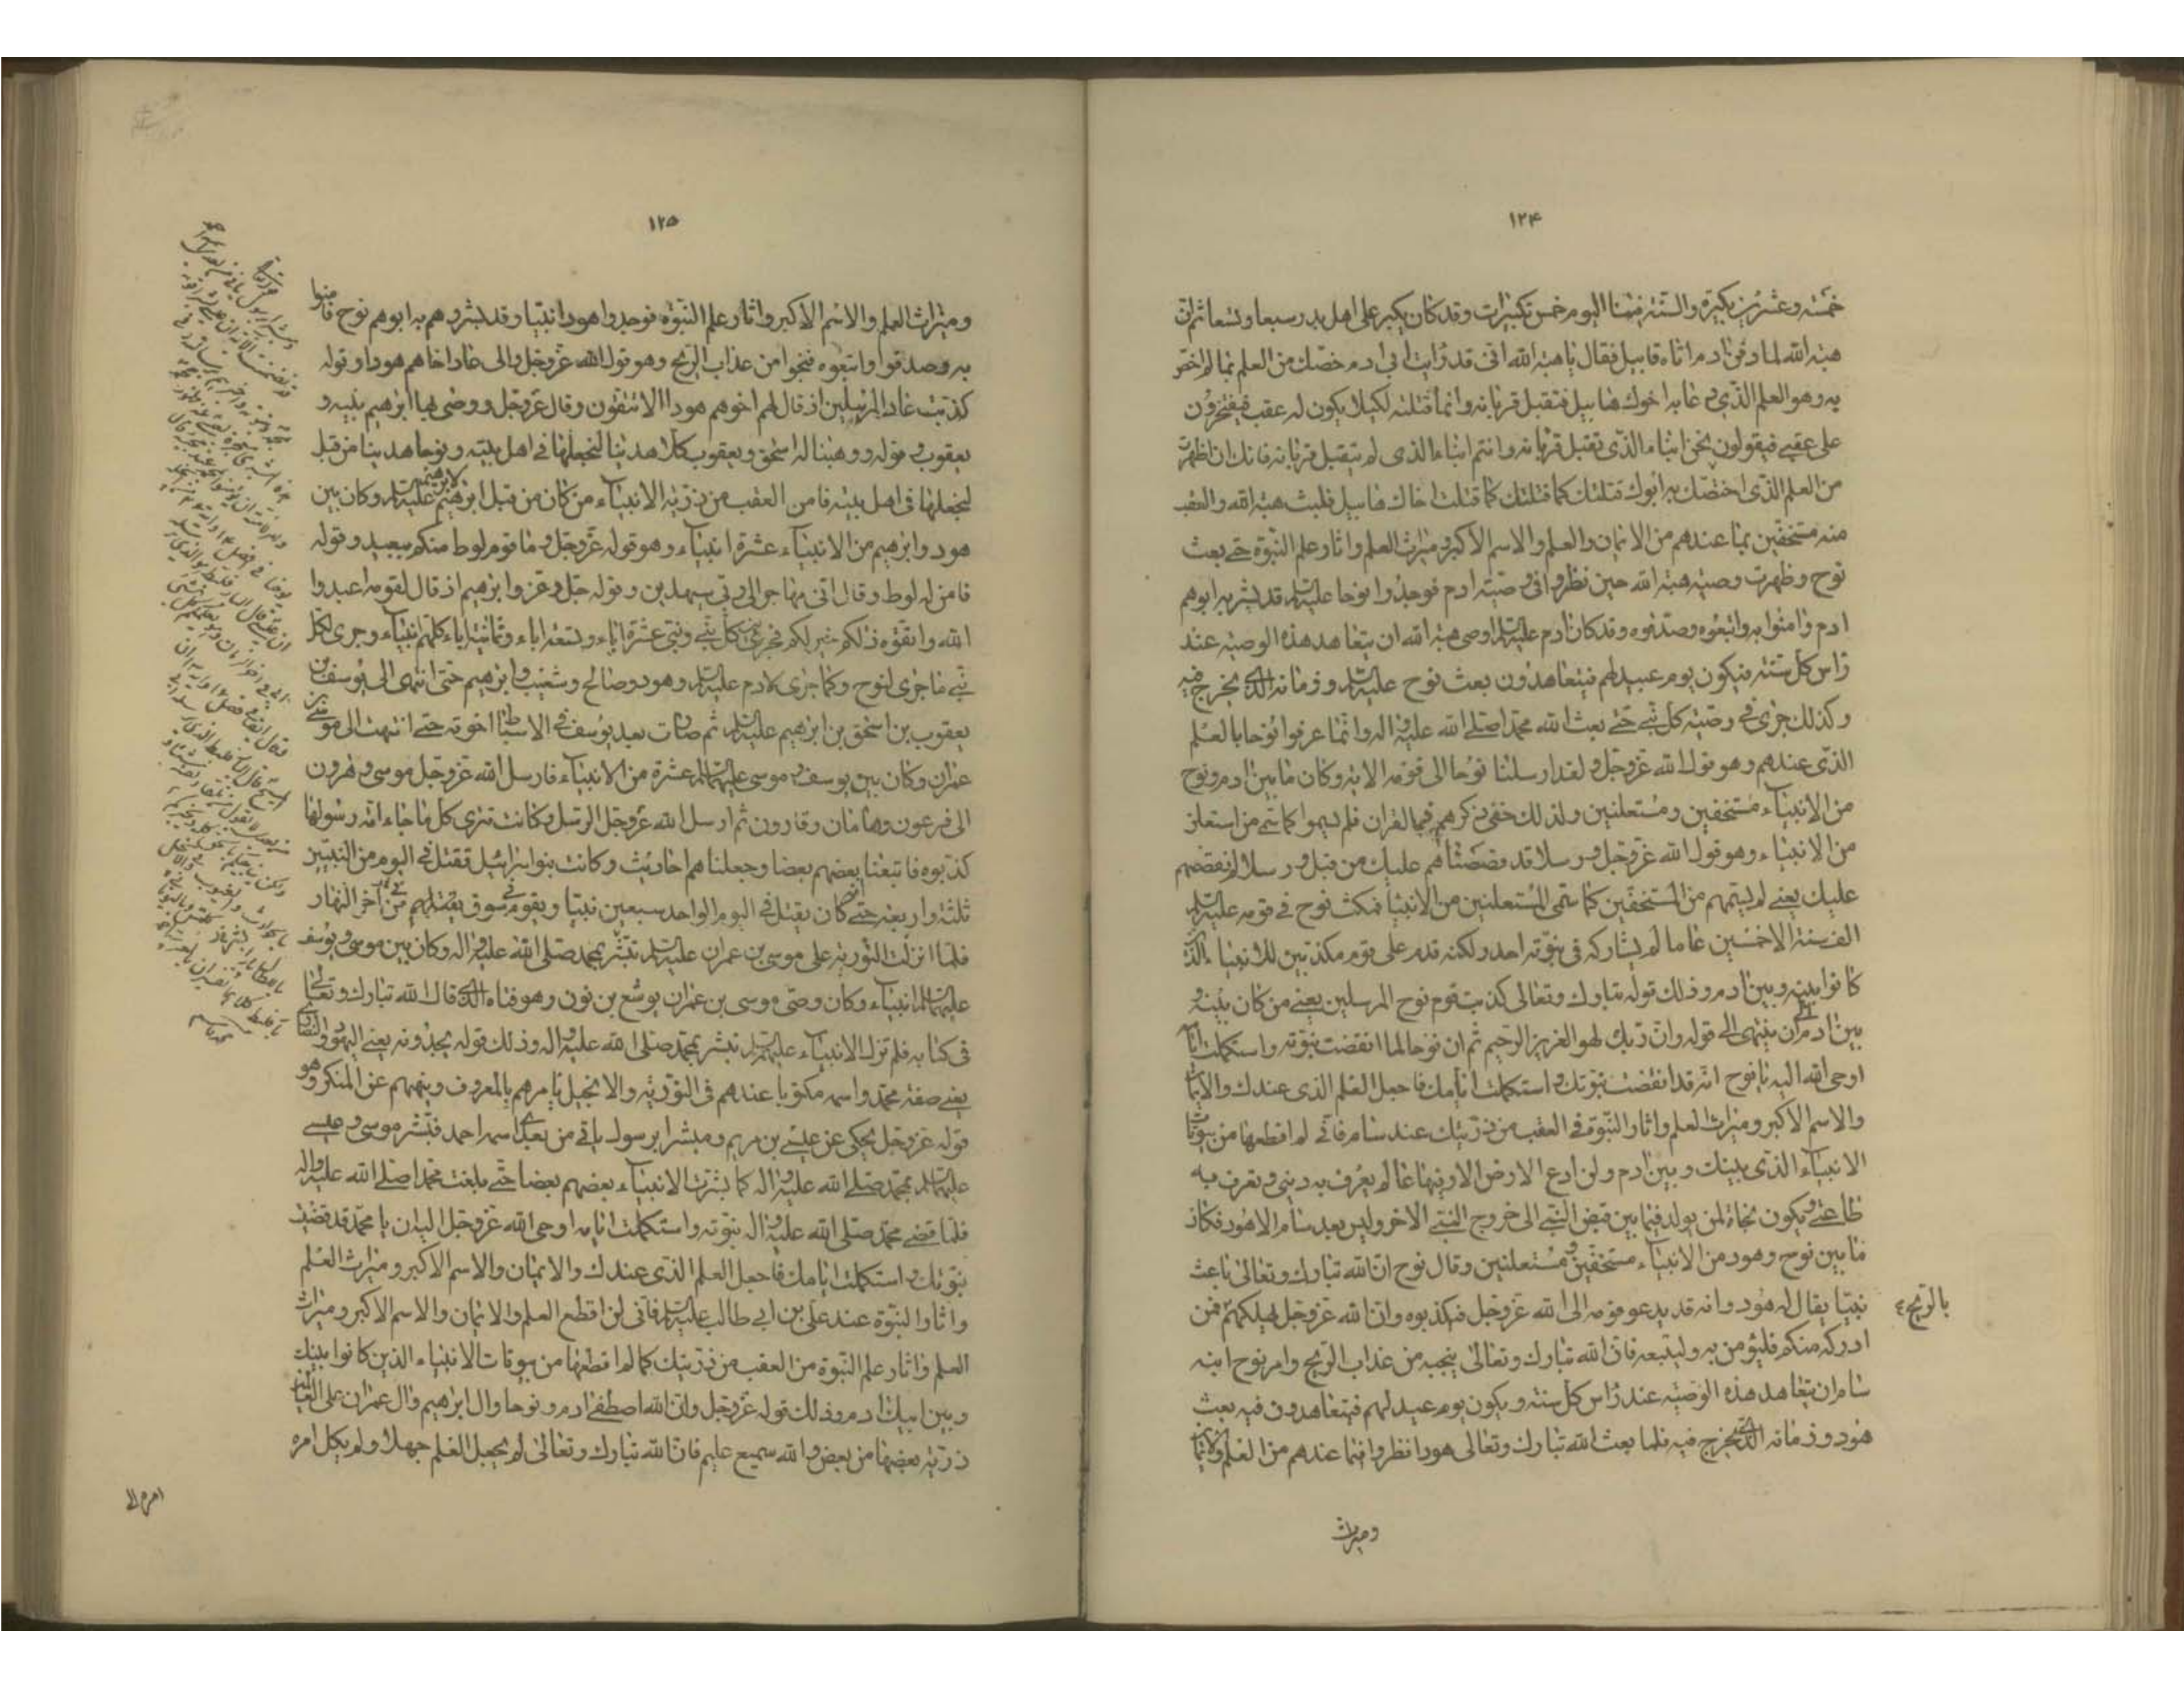 ١٢۴
خمسة وعشرين تكبيرة والسنة فينا اليوم خمس تكبيرات وقد كان يكبر على اهل بدر سبعا وتسعا ثم ان
هبة الله لما دفن ادم اتاه قابيل فقال يا هبة الله انى قد رايت ابى ادم خصك من العلم بما لم اخص
به وهو العلم الذى دعا به اخوك هابيل فتقبل قربانه وانما قتلته لكيلا يكون له عقب فيفتخرون
على عقبى فيقولون نحن ابناء الذى تقبل قربانه وانتم ابناء الذى لم يتقبل قربانه فانك ان اظهرت
من العلم الذى اختصك به ابوك قتلتك كما قتلت اخاك هابيل فلبث هبة الله والعقب
منه مستخفين بما عندهم من الايمان والعلم والاسم الاكبر وميراث العلم واثار علم النبوة حتى بعث
نوح وظهرت وصية هبة الله حين نظروا فى وصية ادم فوجدوا نوحا عليه السلم قد بشر به ابوهم
ادم فامنوا به واتبعوه وصدقوه وقد كان ادم عليه السلم اوصى هبة الله ان يتعاهد هذه الوصية عند
راس كل سنة فيكون يوم عيد لهم فيتعاهدون بعث نوح عليه السلم وزمانه الذى يخرج فيه
وكذلك جرى فى وصية كل نبى حتى بعث الله محمدا صلى الله عليه واله وانما عرفوا نوحا بالعلم
الذى عندهم وهو قول الله عز وجل ولقد ارسلنا نوحا الى قومه الاية وكان ما بين ادم ونوح
من الانبياء مستخفين ومستعلنين ولذلك خفى ذكرهم فى القران فلم يسموا كما سمى من استعلن
من الانبياء وهو قول الله عز وجل ورسلا قد قصصناهم عليك من قبل ورسلا لم نقصصهم
عليك يعنى لم يسمهم من المستخفين كما سمى المستعلنين من الانبيا فمكث نوح فى قومه عليه السلم
الف سنة الا خمسين عاما لم يشاركه فى نبوته احد ولكنه قدم على قوم مكذبين للانبياء الذين
كانوا بينه وبين ادم وذلك قوله تبارك وتعالى كذبت قوم نوح المرسلين يعنى من كان بينه و
بين ادم الى ان ينتهى الى قوله وان ربك لهو العزيز الرحيم ثم ان نوحا لما انقضت نبوته واستكملت ايامه
اوحى الله اليه يا نوح انه قد انقضت نبوتك واستكملت ايامك فاجعل العلم الذى عندك والايمان
والاسم الاكبر وميراث العلم واثار النبوة فى العقب من ذريتك عند سام فانى لم اقطعها من بيوتات
الانبياء الذى بينك وبين ادم ولن ادع الارض الا وفيها عالم يعرف به دينى وتعرف به
طاعتى ويكون نجاة لمن يولد فيما بين قبض النبى الى خروج النبى الاخر وليس بعد سام الا هود فكان
ما بين نوح وهود من الانبياء مستخفين ومستعلنين وقال نوح ان الله تبارك وتعالى باعث
نبيا يقال له هود وانه قد يدعو قومه الى الله عز وجل فيكذبوه وان الله عز وجل مهلكهم فمن
بالريح ع
ادركه منكم فليؤمن به وليتبعه فان الله تبارك وتعالى ينجيه من عذاب الريح وامر نوح ابنه
سام ان يتعاهد هذه الوصية عند راس كل سنة ويكون يوم عيد لهم فيتعاهدون فيه بعث
هود وزمانه الذى يخرج فيه فلما بعث الله تبارك وتعالى هودا نظروا فيما عندهم من العلم والايمان
وميراث
١٢۵
وميراث العلم والاسم الاكبر واثار علم النبوة فوجدوا هودا نبيا وقد بشرهم به ابوهم نوح فامنوا
به وصدقوا واتبعوه فنجوا من عذاب الريح وهو قول الله عز وجل والى عاد اخاهم هودا وقوله
كذبت عاد المرسلين اذ قال لهم اخوهم هود الا تتقون وقال عز وجل ووصى بها ابرهيم بنيه و
يعقوب وقوله ووهبنا له اسحق ويعقوب كلا هدينا لنجعلها فى اهل بيته ونوحا هدينا من قبل
لنجعلها فى اهل بيته فامن العقب من ذرية الانبياء من كان من قبل ابرهيم لابرهيم عليه السلم وكان بين
هود وابرهيم من الانبياء عشرة انبياء وهو قوله عز وجل وما قوم لوط منكم ببعيد وقوله
فامن له لوط وقال انى مهاجر الى ربى سيهدين وقوله جل وعز وابرهيم اذ قال لقومه اعبدوا
الله واتقوه ذلكم خير لكم فجرى بين كل نبى ونبى عشرة اباء وتسعة اباء وثمانية اباء كلهم انبياء وجرى لكل
نبى ما جرى لنوح وكما جرى لادم عليه السلم وهود وصالح وشعيب وابرهيم حتى انتهى الى يوسف بن
يعقوب بن اسحق بن ابرهيم عليه السلم ثم صارت بعد يوسف فى الاسباط اخوته حتى انتهت الى موسى بن
عمران وكان بين يوسف وموسى عليهما السلم عشرة من الانبياء فارسل الله عز وجل موسى وهرون
الى فرعون وهامان وقارون ثم ارسل الله عز وجل الرسل وكانت تترى كل ما جاء امة رسولها
كذبوه فاتبعنا بعضهم بعضا وجعلناهم احاديث وكانت بنو اسرائيل تقتل فى اليوم من النبيين
ثلثة واربعة حتى كان يقتل فى اليوم الواحد سبعين نبيا ويقوم سوق بقتلهم فى اخر النهار
فلما انزلت التورية على موسى بن عمران عليه السلم تبشر بمحمد صلى الله عليه واله وكان بين موسى ويوسف
عليهما السلم انبياء وكان وصى موسى بن عمران يوشع بن نون وهو فتاه الذى قال الله تبارك وتعالى
فى كتابه فلم تزل الانبياء عليهم السلم تبشر بمحمد صلى الله عليه واله وذلك قوله يجدونه يعنى اليهود والنصارى
يعنى صفة محمد واسمه مكتوبا عندهم فى التورية والانجيل يامرهم بالمعروف وينهيهم عن المنكر وهو
قوله عز وجل يحكى عن عيسى بن مريم ومبشرا برسول ياتى من بعدى اسمه احمد فبشر موسى وعيسى
عليهما السلم بمحمد صلى الله عليه واله كما بشرت الانبياء بعضهم بعضا حتى بلغت محمدا صلى الله عليه واله
فلما قضى محمد صلى الله عليه واله نبوته واستكملت ايامه اوحى الله عز وجل اليه ان يا محمد قد قضيت
نبوتك واستكملت ايامك فاجعل العلم الذى عندك والايمان والاسم الاكبر وميراث العلم
واثار النبوة عند على بن ابى طالب عليه السلم فانى لن اقطع العلم والايمان والاسم الاكبر وميراث
العلم واثار علم النبوة من العقب من ذريتك كما لم اقطعها من بيوتات الانبياء الذين كانوا بينك
وبين ابيك ادم وذلك قوله عز وجل وان الله اصطفى ادم ونوحا وال ابرهيم وال عمران على العالمين
ذرية بعضها من بعض والله سميع عليم فان الله تبارك وتعالى لم يجعل العلم جهلا ولم يكل امره
امره الى